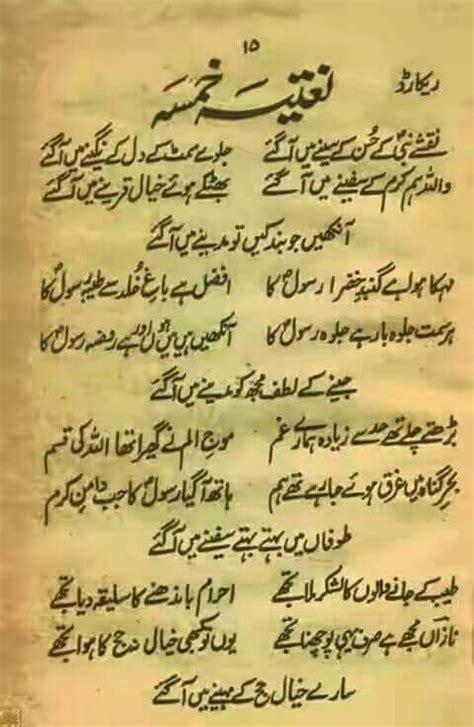 ۱۵
ریکارڈ
نعتیہ خمسہ
نقشے نبیؐ کے حُسن کے سینے میں آ گئے جلوے سمٹ کے دل کے نگینے میں آ گئے
واللہ ہم کرم کے سفینے میں آ گئے بھٹکے ہوئے خیال قرینے میں آ گئے
آنکھیں جو بند کیں تو مدینے میں آ گئے
مہکا ہوا ہے گنبدِ خضرا رسولؐ کا افضل ہے باغِ خُلد سے طیبہ رسولؐ کا
ہر سمت جلوہ بار ہے جلوہ رسولؐ کا آنکھیں ہیں میں ہوں اور ہے روضہ رسولؐ کا
جینے کے لطف مجھ کو مدینے میں آ گئے
بڑھتے چلے تھے حد سے زیادہ ہمارے غم موجِ الم نے گھیرا تھا اللہ کی قسم
بحرِ گناہ میں غرق ہوئے جا رہے تھے ہم ہاتھ آ گیا رسولؐ کا جب دامنِ کرم
طوفاں میں بہتے بہتے سفینے میں آ گئے
طیبہ کے جانے والوں کا لشکر ملا تجھے احرام باندھنے کا سلیقہ دیا تجھے
نازاںؔ مجھے ہے صرف یہی پوچھنا تجھے یوں تو کبھی خیال نہ حج کا ہوا تجھے
سارے خیال حج کے مہینے میں آ گئے